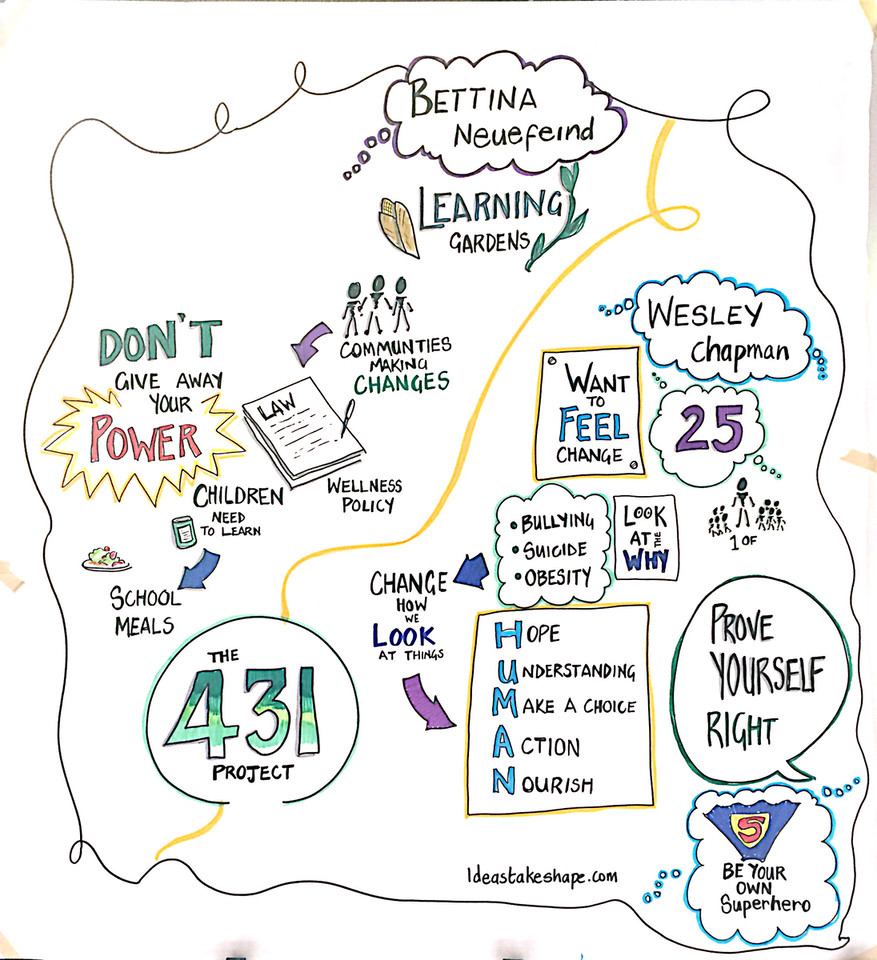 BETTINA
Neuefeind
LEARNING
GARDENS
COMMUNTIES
MAKING
CHANGES
DON'T
GIVE AWAY
YOUR
POWER
LAW
WELLNESS
POLICY
CHILDREN
NEED
TO LEARN
SCHOOL
MEALS
THE
431
PROJECT
WESLEY
Chapman
WANT
TO
FEEL
CHANGE
25
1 OF
LOOK
AT THE
WHY
• BULLYING
• SUICIDE
• OBESITY
CHANGE
HOW
WE
LOOK
AT THINGS
HOPE
UNDERSTANDING
MAKE A CHOICE
ACTION
NOURISH
PROVE
YOURSELF
RIGHT
S
BE YOUR
OWN
Superhero
Ideastakeshape.com